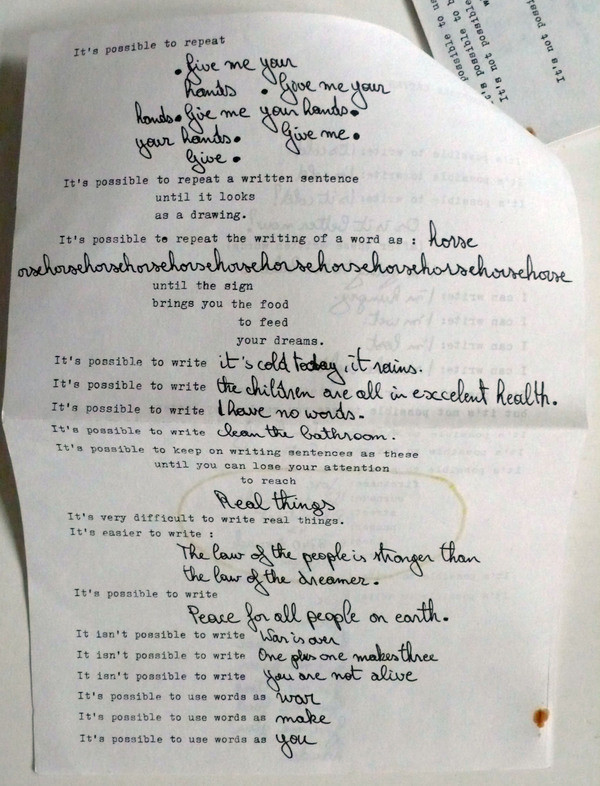 It's possible to repeat
. Give me your
hands . Give me your
hands. Give me your hands.
your hands. Give me.
Give.
It's possible to repeat a written sentence
until it looks
as a drawing.
It's possible to repeat the writing of a word as : horse
orsehorsehorsehorsehorsehorsehorsehorsehorsehorsehorsehorse
until the sign
brings you the food
to feed
your dreams.
It's possible to write it's cold today, it rains.
It's possible to write the children are all in excelent health.
It's possible to write I have no words.
It's possible to write clean the bathroom.
It's possible to keep on writing sentences as these
until you can lose your attention
to reach
Real things
It's very difficult to write real things.
It's easier to write :
The law of the people is stronger than
the law of the dreamer.
It's possible to write
Peace for all people on earth.
It isn't possible to write War is over
It isn't possible to write One plus one makes three
It isn't possible to write you are not alive
It's possible to use words as war
It's possible to use words as make
It's possible to use words as you
It's not possi